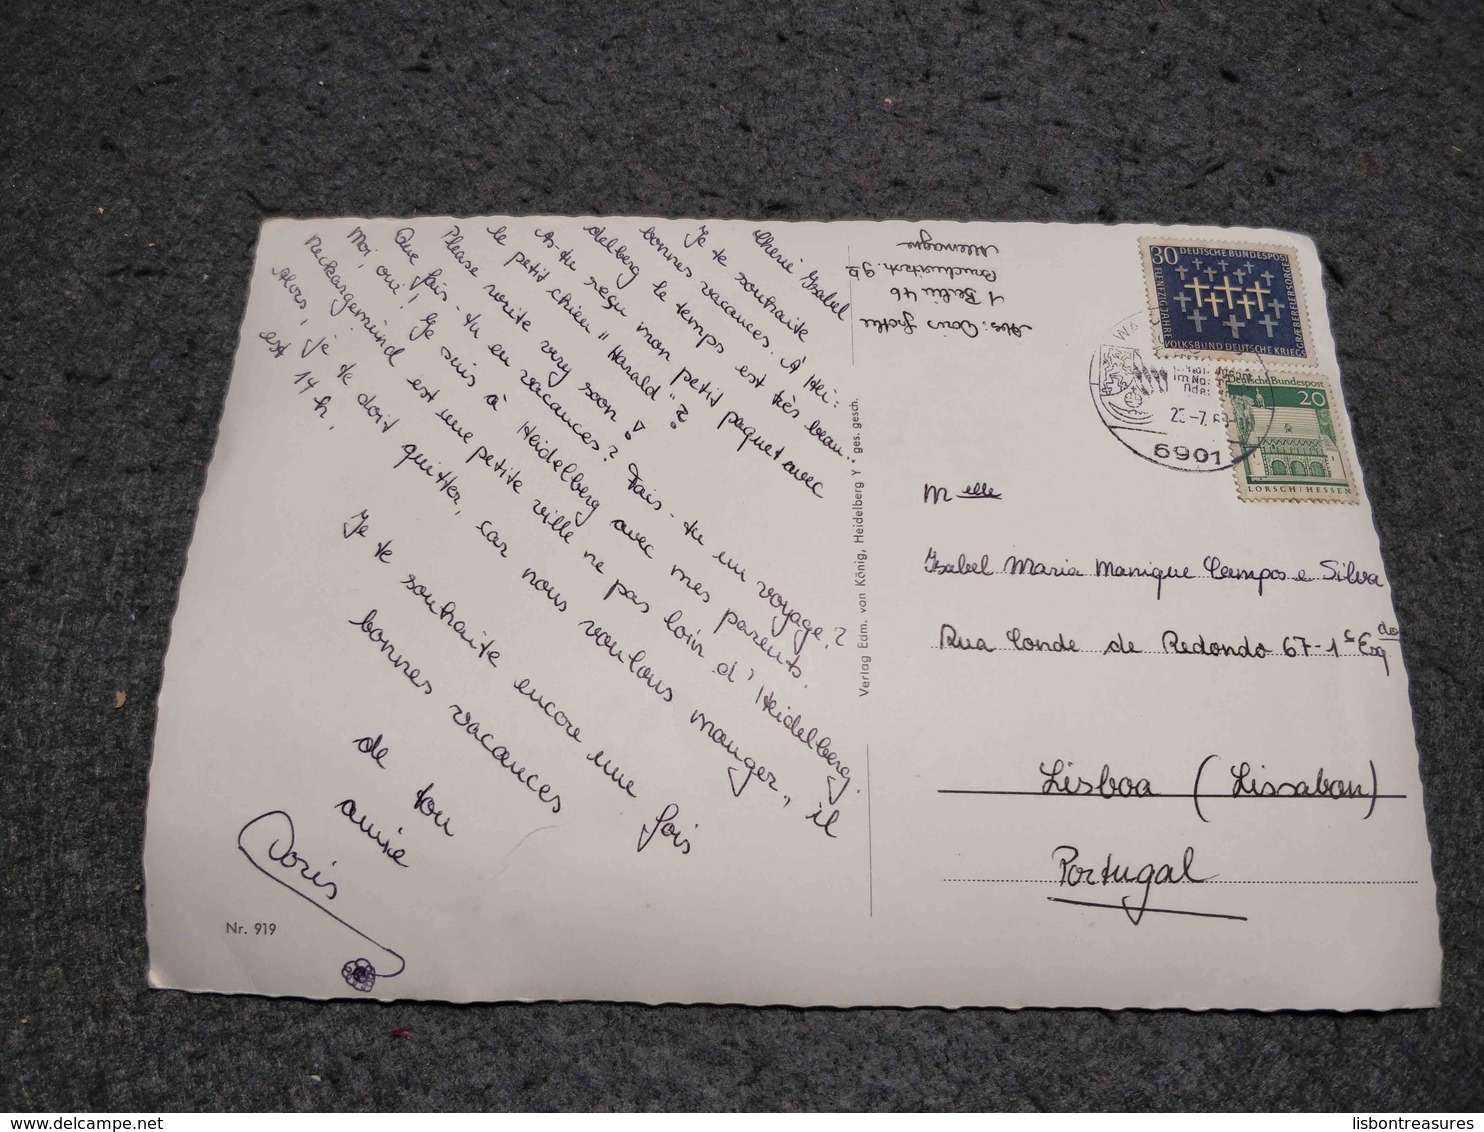 Chérie Ysabel
Je te souhraite
bonnes vacances. À Hei:
delberg le temps est très beau.
As-tu reçu mon petit paquet avec
le petit chien "Harald"?
Please write very soon!
Que fais-tu en vacances? Fais-tu un voyage?
Moi, oui! Je suis à Heidelberg avec mes parents.
Neckargemünd est une petite ville ne pas loin d'Heidelberg.
Alors, je te doit quitter, car nous voulons manger, il
est 14 h.
Je te souhraite encore une fois
bonnes vacances
de ton
amie
Doris
Nr. 919
Verlag Edm. von König, Heidelberg Y * ges. gesch.
Abs: Doris
1 Berlin 46
9b
Allemagne
30 DEUTSCHE BUNDESPOST
FUENFZIG JAHRE
VOLKSBUND DEUTSCHE KRIEGS
GRAEBERFUERSORGE
Deutsche Bundespost
20
LORSCH / HESSEN
6901
Melle
Ysabel Maria Manique Campos e Silva
Rua Conde de Redondo 67-1º Esqdo
Lisboa (Lissabon)
Portugal
lisbontreasures